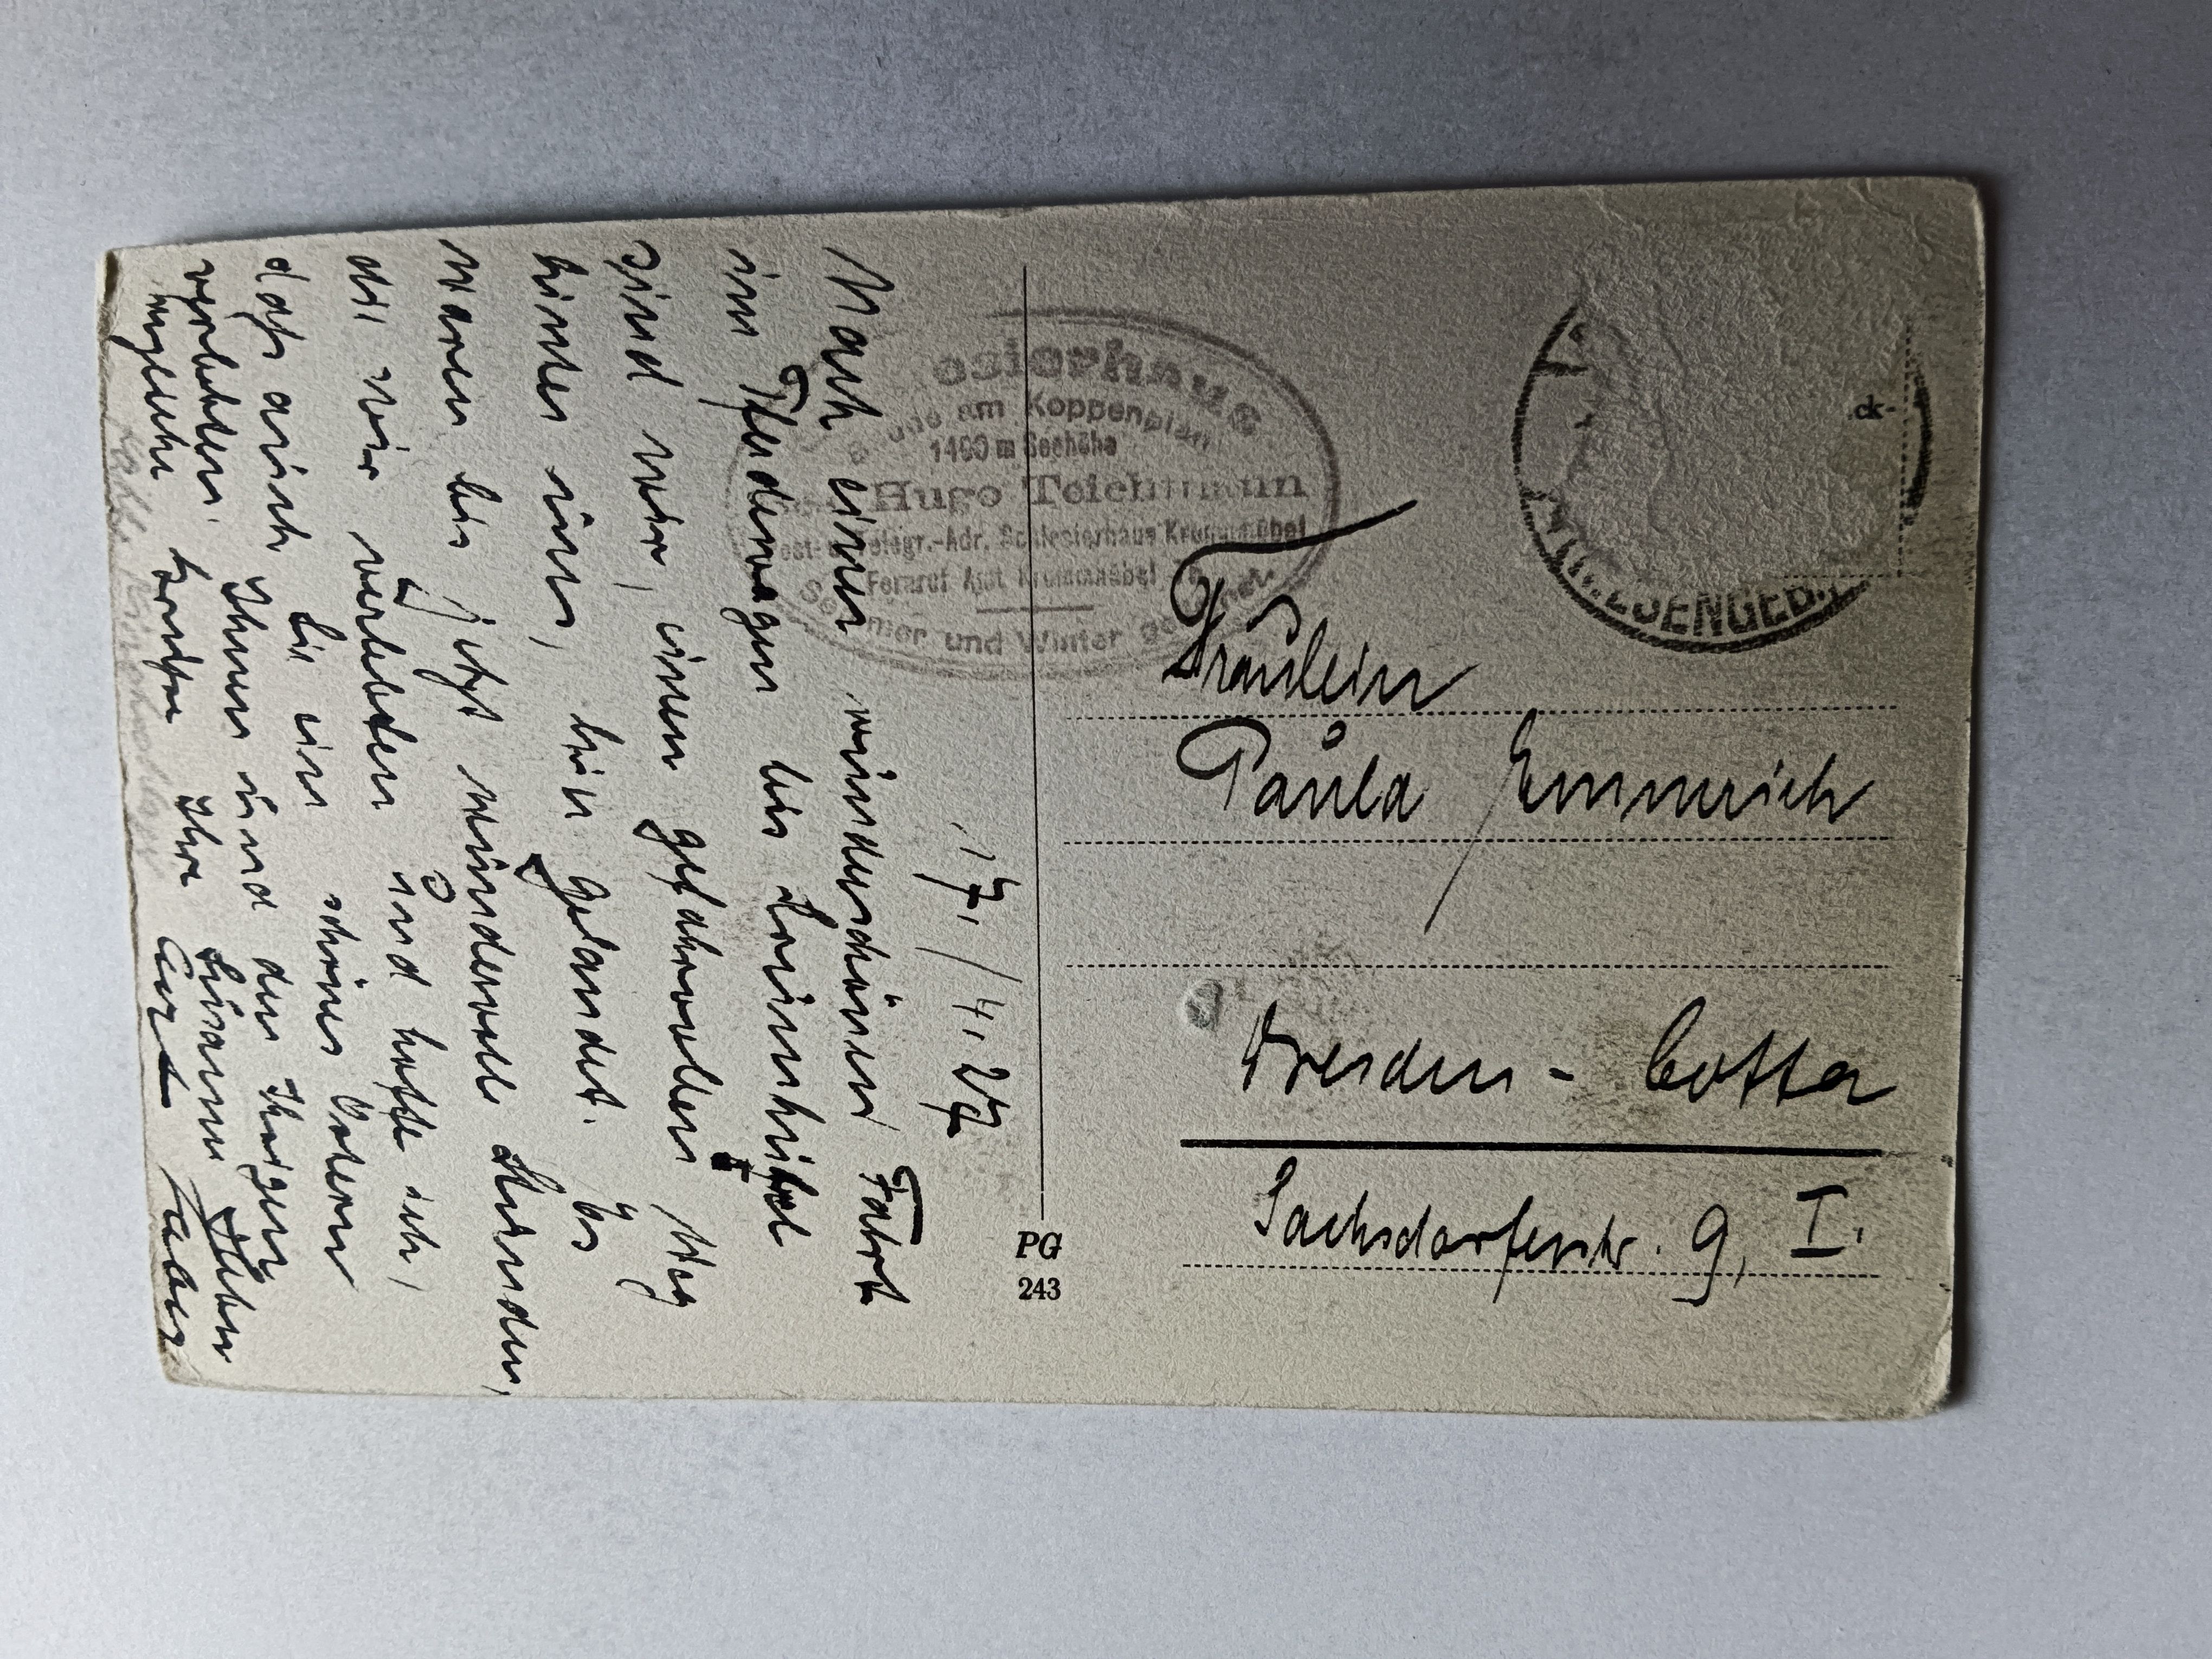 17./4. 27
Nach einer wunderschönen Fahrt
im Pferdewagen bis Krummhübel
sind wir, einen gefahrvollen Weg
hinter uns, hier gelandet. Es
waren bis jetzt wundervolle Stunden,
die wir verlebten und hoffe ich,
daß auch Sie ein schönes Ostern
verlebten. Ihnen und den Ihrigen
herzliche Grüße Ihre
Schlesierhaus
Baude am Koppenplan
1400 m Seehöhe
Hugo Teichmann
Post- u. Telegr.-Adr. Schlesierhaus Krummhübel
Fernruf Amt Krummhübel
Sommer und Winter geöffnet
PG
243
ck-
ESENGEB.
Fräulein
Paula Emmrich
Dresden - Cotta
Sachsdorferstr. 9, I.